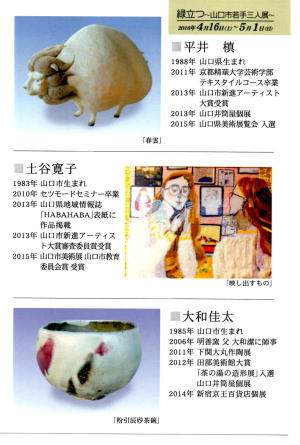 緑立つ～山口市若手三人展～
2016年4月16日(土)～5月1日(日)
平井 槙
1988年 山口県生まれ
2011年 京都精華大学芸術学部
テキスタイルコース卒業
2013年 山口市新進アーティスト
大賞受賞
2013年 山口井筒屋個展
2015年 山口県美術展覧会 入選
「春雲」
土谷寛子
1983年 山口市生まれ
2010年 セツモードセミナー卒業
2013年 山口県地域情報誌
「HABAHABA」表紙に
作品掲載
2013年 山口市新進アーティス
ト大賞審査委員賞受賞
2015年 山口市美術展 山口市教育
委員会賞 受賞
「映し出すもの」
大和佳太
1985年 山口市生まれ
2006年 明善窯 父 大和潔に師事
2011年 下関大丸作陶展
2012年 田部美術館大賞
「茶の湯の造形展」入選
山口井筒屋個展
2014年 新宿京王百貨店個展
「粉引辰砂茶碗」